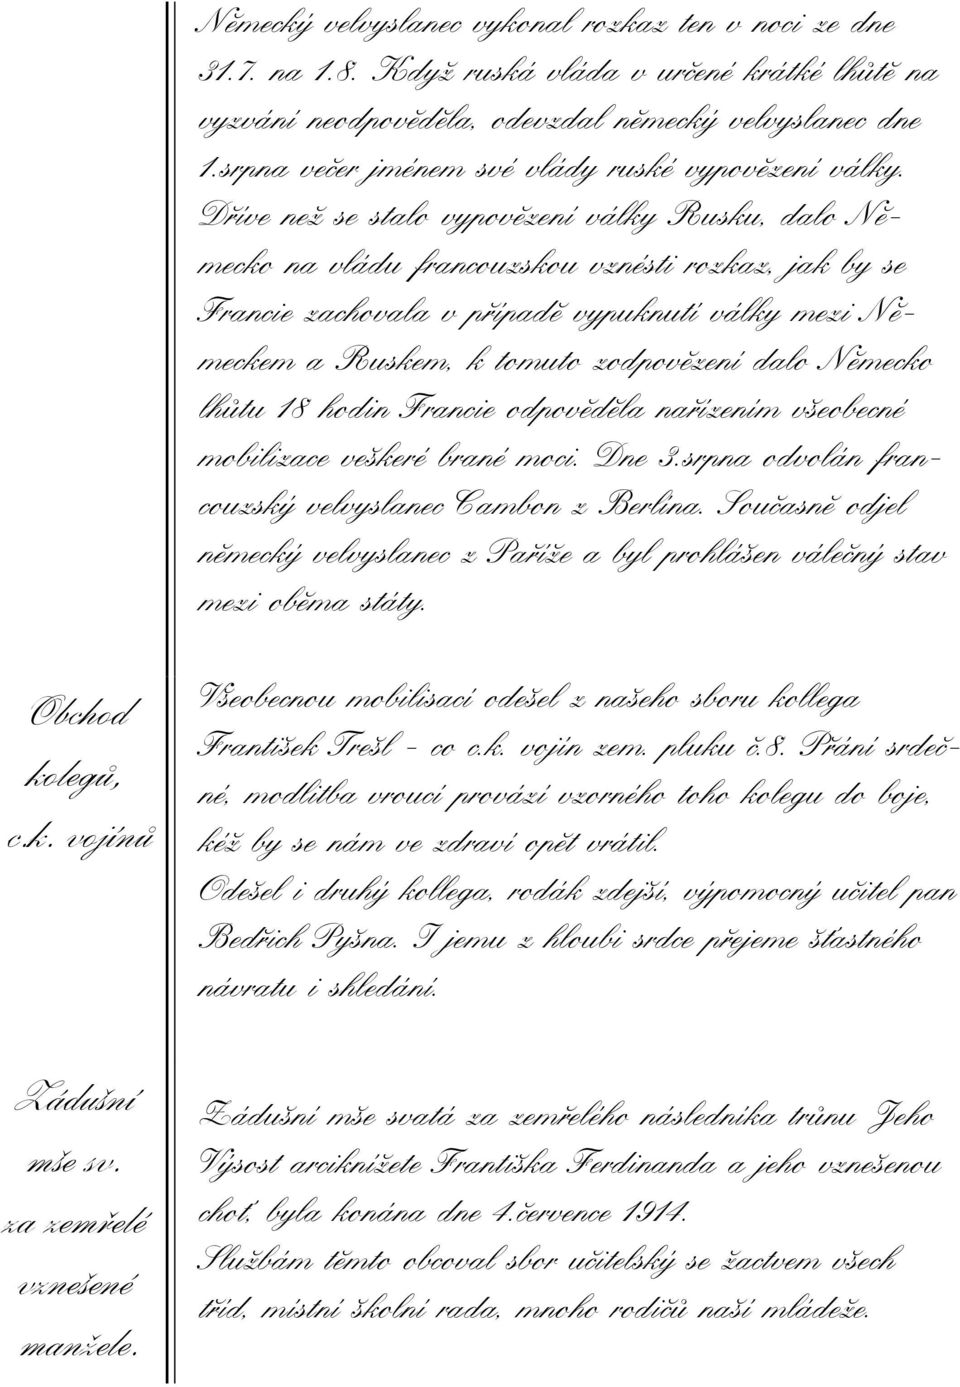 Německý velvyslanec vykonal rozkaz ten v noci ze dne
31.7. na 1.8. Když ruská vláda v určené krátké lhůtě na
vyzvání neodpověděla, odevzdal německý velvyslanec dne
1.srpna večer jménem své vlády ruské vypovězení války.
Dříve než se stalo vypovězení války Rusku, dalo Ně-
mecko na vládu francouzskou vznésti rozkaz, jak by se
Francie zachovala v případě vypuknutí války mezi Ně-
meckem a Ruskem, k tomuto zodpovězení dalo Německo
lhůtu 18 hodin Francie odpověděla nařízením všeobecné
mobilizace veškeré brané moci. Dne 3.srpna odvolán fran-
couzský velvyslanec Cambon z Berlína. Současně odjel
německý velvyslanec z Paříže a byl prohlášen válečný stav
mezi oběma státy.
Obchod
kolegů,
c.k. vojínů
Všeobecnou mobilisací odešel z našeho sboru kollega
František Trešl - co c.k. vojín zem. pluku č.8. Přání srdeč-
né, modlitba vroucí provází vzorného toho kolegu do boje,
kéž by se nám ve zdraví opět vrátil.
Odešel i druhý kollega, rodák zdejší, výpomocný učitel pan
Bedřich Pyšna. I jemu z hloubi srdce přejeme šťastného
návratu i shledání.
Zádušní
mše sv.
za zemřelé
vznešené
manžele.
Zádušní mše svatá za zemřelého následníka trůnu Jeho
Výsost arciknížete Františka Ferdinanda a jeho vznešenou
choť, byla konána dne 4.července 1914.
Službám těmto obcoval sbor učitelský se žactvem všech
tříd, místní školní rada, mnoho rodičů naší mládeže.